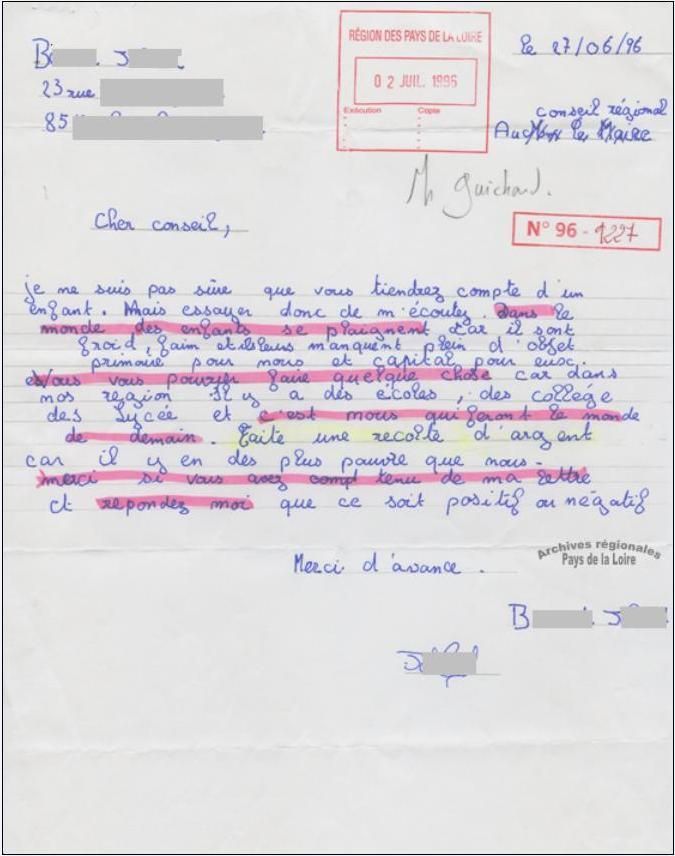 B J
23 rue
85
RÉGION DES PAYS DE LA LOIRE
02 JUIL. 1996
Exécution Copie
le 27/06/96
conseil régional
Au Maire
M Guichard.
N° 96 - 1227
Cher conseil,
je ne suis pas sûre que vous tiendrez compte d'un
enfant. Mais essayer donc de m'écoutez. Dans le
monde des enfants se plaignent car il sont
froid, faim et ils leurs manquent plein d'objet
primaire pour nous et capital pour eux.
Vous vous pourrier faire quelque chose car dans
nos region il y a des écoles, des collège
des Lycée et c'est nous qui feront le monde
de demain. Faite une recolte d'argent
car il y en des plus pauvre que nous.
merci si vous avez compt tenu de ma lettre
et repondez moi que ce soit positif ou négatif
Merci d'avance.
Archives régionales
Pays de la Loire
B J